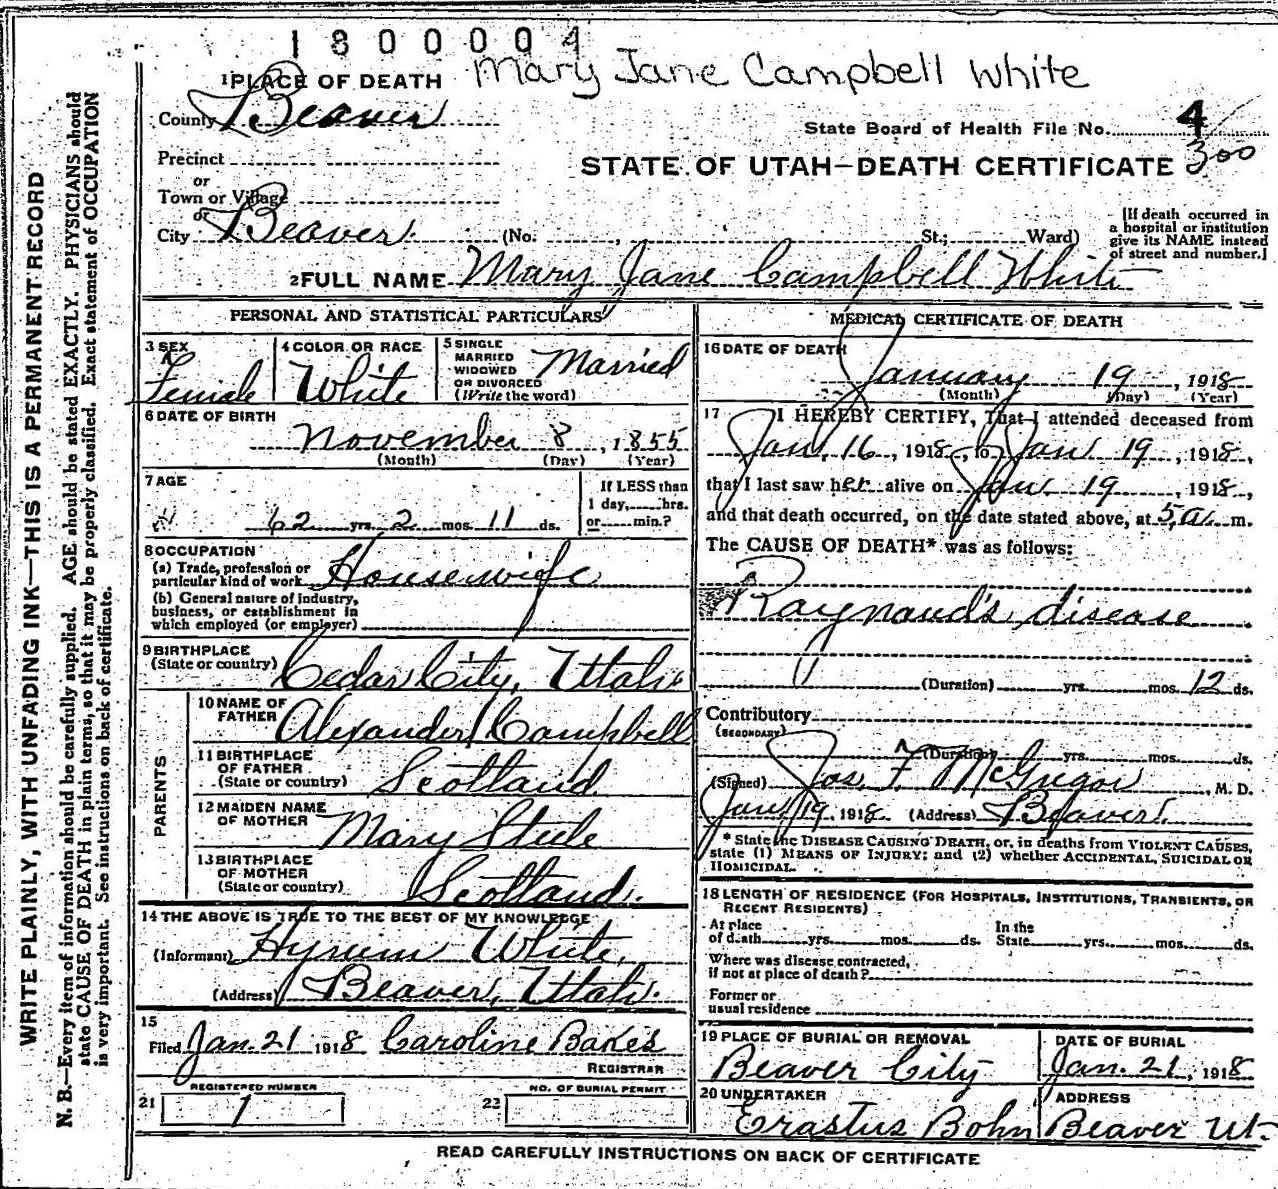 1 8 0 0 0 0 4
Mary Jane Campbell White
1 PLACE OF DEATH
County Beaver
State Board of Health File No. 4
Precinct
or
STATE OF UTAH—DEATH CERTIFICATE 300
Town or Village
or
City Beaver. (No. , St.; Ward)
[If death occurred in
a hospital or institution
give its NAME instead
of street and number.]
2 FULL NAME Mary Jane Campbell White
PERSONAL AND STATISTICAL PARTICULARS
3 SEX
Female
4 COLOR OR RACE
White
5 SINGLE
MARRIED
WIDOWED
OR DIVORCED
(Write the word)
Married
6 DATE OF BIRTH
November 8, 1855
(Month) (Day) (Year)
7 AGE
62 yrs. 2 mos. 11 ds.
If LESS than
1 day, hrs.
or min.?
8 OCCUPATION
(a) Trade, profession or
particular kind of work Housewife
(b) General nature of industry,
business, or establishment in
which employed (or employer)
9 BIRTHPLACE
(State or country) Cedar City, Utah
PARENTS
10 NAME OF
FATHER Alexander Campbell
11 BIRTHPLACE
OF FATHER
(State or country) Scotland
12 MAIDEN NAME
OF MOTHER Mary Steele
13 BIRTHPLACE
OF MOTHER
(State or country) Scotland.
14 THE ABOVE IS TRUE TO THE BEST OF MY KNOWLEDGE
(Informant) Hyrum White,
(Address) Beaver, Utah.
15
Filed Jan. 21 1918 Caroline
REGISTRAR
REGISTERED NUMBER
21 1
NO. OF BURIAL PERMIT
22
MEDICAL CERTIFICATE OF DEATH
16 DATE OF DEATH
January 19, 1918
(Month) (Day) (Year)
17 I HEREBY CERTIFY, That I attended deceased from
Jan. 16, 1918, to Jan 19, 1918,
that I last saw her alive on Jan 19, 1918,
and that death occurred, on the date stated above, at 5 a. m.
The CAUSE OF DEATH* was as follows:
Raynaud's disease
(Duration) yrs. mos. 12 ds.
Contributory
(SECONDARY)
(Duration) yrs. mos. ds.
(Signed) Jos. F. McGregor, M. D.
Jan 19, 1918 (Address) Beaver.
* State the DISEASE CAUSING DEATH, or, in deaths from VIOLENT CAUSES,
state (1) MEANS OF INJURY; and (2) whether ACCIDENTAL, SUICIDAL OR
HOMICIDAL.
18 LENGTH OF RESIDENCE (FOR HOSPITALS, INSTITUTIONS, TRANSIENTS, OR
RECENT RESIDENTS)
At place
of death yrs. mos. ds.
In the
State yrs. mos. ds.
Where was disease contracted,
if not at place of death?
Former or
usual residence
19 PLACE OF BURIAL OR REMOVAL
Beaver City
DATE OF BURIAL
Jan. 21, 1918
20 UNDERTAKER
Erastus Bohn
ADDRESS
Beaver Ut.
READ CAREFULLY INSTRUCTIONS ON BACK OF CERTIFICATE
WRITE PLAINLY, WITH UNFADING INK—THIS IS A PERMANENT RECORD
N. B.—Every item of information should be carefully supplied. AGE should be stated EXACTLY. PHYSICIANS should
state CAUSE OF DEATH in plain terms, so that it may be properly classified. Exact statement of OCCUPATION
is very important. See instructions on back of certificate.